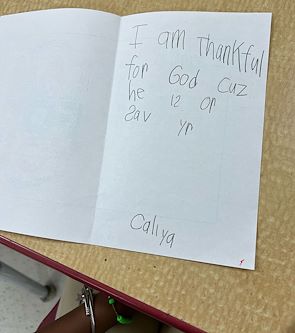 I am Thankful
for God cuz
he 12 or
2av yr
Caliya